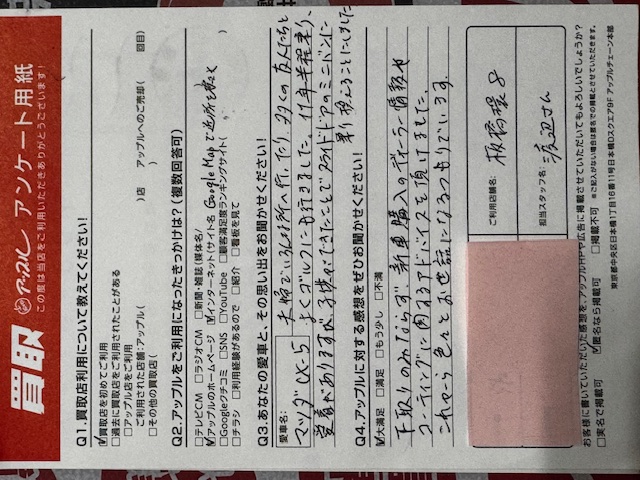 買取 アップル アンケート用紙
この度は当店をご利用いただきありがとうございます!
Q1.買取店利用について教えてください!
☑買取店を初めてご利用
□過去に買取店をご利用されたことがある
□アップル店をご利用
ご利用された店舗:アップル( )店 アップルへのご売却( 回目)
□その他の買取店( )
Q2.アップルをご利用になったきっかけは?(複数回答可)
□テレビCM □ラジオCM □新聞・雑誌(媒体名/ )
☑アップルのホームページ ☑インターネット(サイト名 Google Mapで近所を検索 )
□Googleクチコミ □SNS □YouTube □顧客満足度ランキングサイト( )
□チラシ □利用経験があるので □紹介 □看板を見て
Q3.あなたの愛車と、その思い出をお聞かせください!
愛車名:
マツダ CX-5
夫婦でいろんな所へ行ったり、多くの友人たちと
よくゴルフにも行きました。11年半程乗り、
愛着がありますが、子供ができたことでスライドドアのミニバンに
乗り換えることにしました
Q4.アップルに対する感想をぜひお聞かせください!
☑大満足 □満足 □もう少し □不満
下取りのみならず、新車購入のディーラー情報や
コーティングに関するアドバイスを頂けました。
これから色々とお世話になるつもりでいます。
ご利用店舗名: 板橋環8
担当スタッフ名: 渡辺さん
お客様に書いていただいた感想を、アップルHPや広告に掲載させていただいてもよろしいでしょうか?
□実名で掲載可 ☑匿名なら掲載可 □掲載不可 ※ご記入がない場合は匿名での掲載とさせていただきます。
東京都中央区日本橋1丁目16番11号日本橋Dスクエア9F アップルチェーン本部